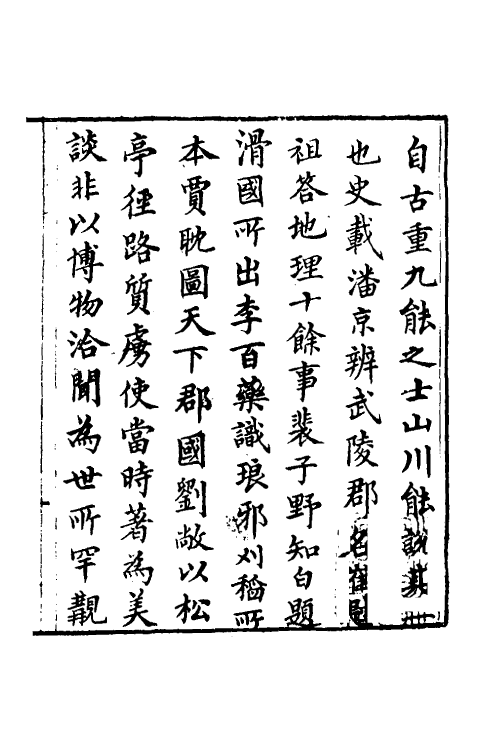 自古重九能之士山川能說其一
也史載潘京辨武陵郡名崔
祖答地理十餘事裴子野知白題
滑國所出李百藥識琅邪刈稻所
本賈耽圖天下郡國劉敞以松
亭徑路質虜使當時著為美
談非以博物洽聞為世所罕覯